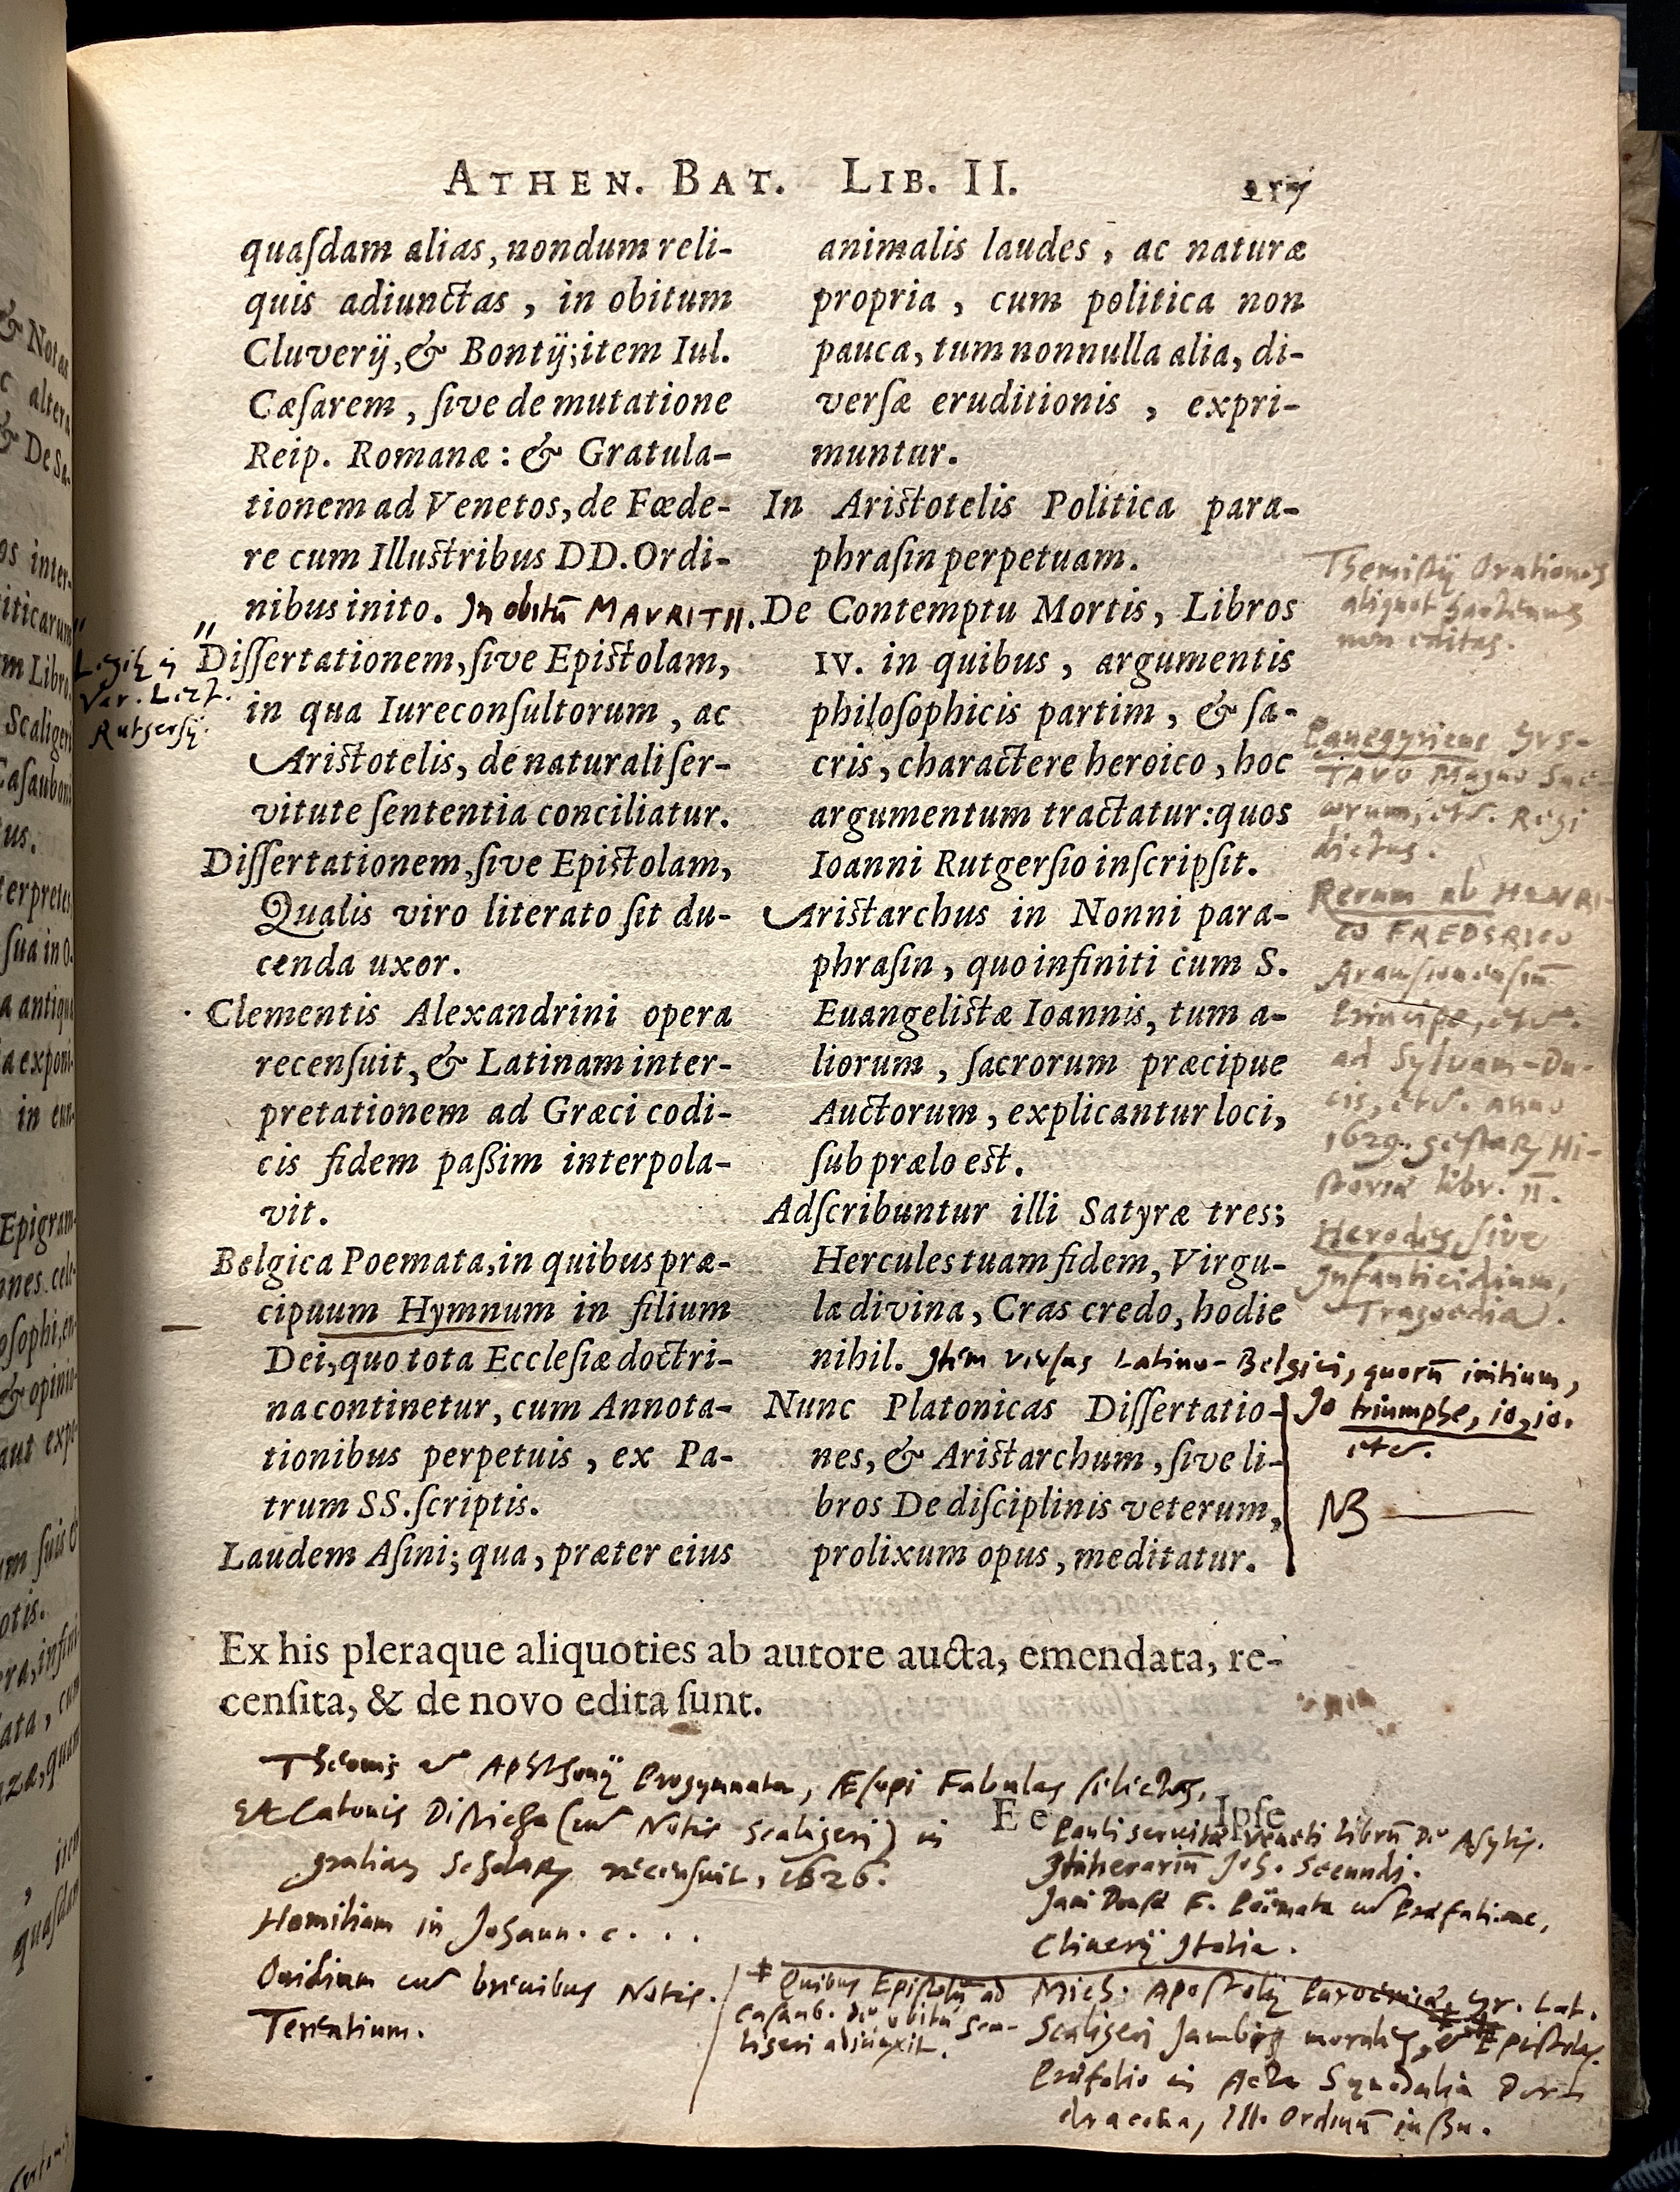 ATHEN. BAT. LIB. II.
quaſdam alias, nondum reli-
quis adiunctas, in obitum
Cluverij, & Bontij; item Iul.
Cæſarem, ſive de mutatione
Reip. Romanæ: & Gratula-
tionem ad Venetos, de Fœde-
re cum Illuſtribus DD. Ordi-
nibus inito. In obitū MAVRITII.
" Diſſertationem, ſive Epiſtolam,
in qua Iureconſultorum, ac
Ariſtotelis, de naturali ſer-
vitute ſententia conciliatur.
Legitr in
Var. Lect.
Rutgersij.
Diſſertationem, ſive Epiſtolam,
Qualis viro literato ſit du-
cenda uxor.
Clementis Alexandrini opera
recenſuit, & Latinam inter-
pretationem ad Græci codi-
cis fidem paßim interpola-
vit.
Belgica Poemata, in quibus præ-
cipuum Hymnum in filium
Dei, quo tota Eccleſiæ doctri-
na continetur, cum Annota-
tionibus perpetuis, ex Pa-
trum SS. ſcriptis.
Laudem Aſini; qua, præter eius
animalis laudes, ac naturæ
propria, cum politica non
pauca, tum nonnulla alia, di-
verſæ eruditionis, expri-
muntur.
In Ariſtotelis Politica para-
phraſin perpetuam.
De Contemptu Mortis, Libros
IV. in quibus, argumentis
philoſophicis partim, & ſa-
cris, charactere heroico, hoc
argumentum tractatur: quos
Ioanni Rutgerſio inſcripſit.
Ariſtarchus in Nonni para-
phraſin, quo infiniti cum S.
Euangeliſtæ Ioannis, tum a-
liorum, ſacrorum præcipue
Auctorum, explicantur loci,
ſub prælo eſt.
Adſcribuntur illi Satyræ tres;
Hercules tuam fidem, Virgu-
la divina, Cras credo, hodie
nihil. Item verſus Latino-Belgici, quorū initium,
Io triumphe, io, io.
etc.
Nunc Platonicas Diſſertatio-
nes, & Ariſtarchum, ſive li-
bros De diſciplinis veterum,
prolixum opus, meditatur.
NB
Themiſtij Orationes
aliquot hactenus
non editas.
Panegyricus GVS-
TAVO Magno Sue-
corum, etc. Regi
dictus.
Rerum ab HENRI-
CO FREDERICO
Arauſionenſiū
Principe, etc.
ad Sylvam-Du-
cis, etc. anno
1629. geſtarū Hi-
ſtoriæ libr. II.
Herodes, ſive
Infanticidium,
Tragoedia.
Ex his pleraque aliquoties ab autore aucta, emendata, re-
cenſita, & de novo edita ſunt.
E e Ipſe
Theonis et Aphthonij Progymnata, Æſopi Fabulas ſelectas,
Et Catonis Diſticha (cum Notis Scaligeri) in
gratiam Scholarū recenſuit, 1626.
Homiliam in Johann. c. . .
Ovidium cum brevibus Notis.
Terentium.
Pauli servitæ Veneti librū De Aſylis.
Itinerariū Joh. Secundi.
Jani Douſæ F. Poëmata cum Præfatione,
Cluverij Italia.
Mich. Apoſtolij Paroemias, Gr. Lat.
Scaligeri Jambos morales, et Epiſtolas.
Præfatio in Acta Synodalia Dord-
dracena, Ill. Ordinū iuſſu.
Quibus Epiſtolā ad
Caſaub. de obitu Sca-
ligeri adiunxit.